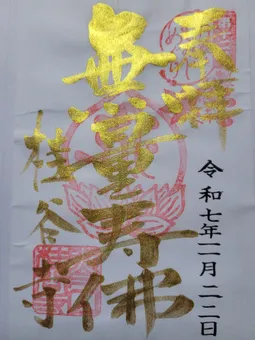 奉拝
令和七年二月二二日
無量寿佛
桂谷寺